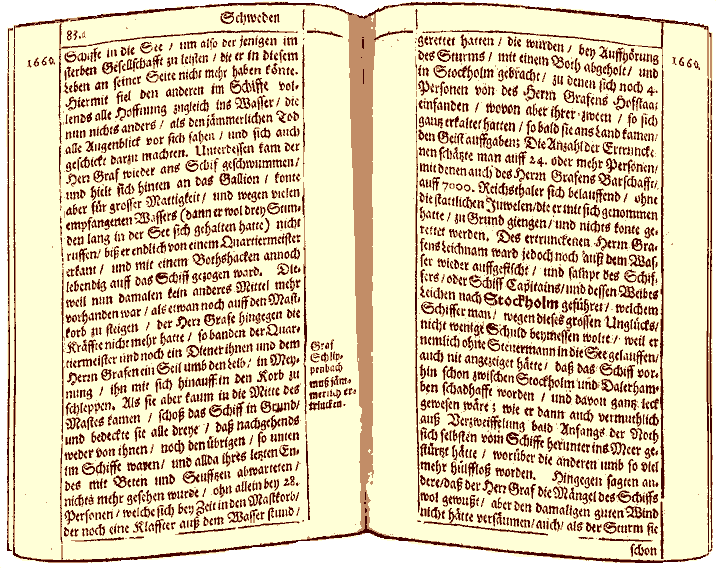 Schweden
83.
1660.
Schiffe in die See / um also der jenigen im
sterben Gesellschafft zu leisten / die er in diesem
Leben an seiner Seite nicht mehr haben könte.
Hiermit fiel den anderen im Schiffe vol-
lends alle Hoffnung zugleich ins Wasser / die
nun nichts anders / als den jämmerlichen Tod
alle Augenblick vor sich sahen / und sich auch
geschickt darzu machten. Unterdessen kam der
Herr Graf wieder ans Schif geschwummen /
und hielt sich hinten an das Gallion / konte
aber für grosser Mattigkeit / und wegen vielen
empfangenen Wassers (dann er wol drey Stun-
den lang in der See sich gehalten hatte) nicht
ruffen / biß er endlich von einem Quartiermeister
erkant / und mit einem Bothshacken annoch
lebendig auff das Schiff gezogen ward. Die-
weil nun damalen kein anderes Mittel mehr
vorhanden war / als etwan noch auff den Mast-
korb zu steigen / der Herr Grafe hingegen die
Kräffte nicht mehr hatte / so banden der Quar-
tiermeister und noch ein Diener ihnen und dem
Herrn Grafen ein Seil umb den Leib / in Mey-
nung / ihn mit sich hinauff in den Korb zu
schleppen. Als sie aber kaum in die Mitte des
Mastes kamen / schoß das Schiff in Grund /
und bedeckte sie alle dreye / daß nachgehends
weder von ihnen / noch den übrigen / so unten
im Schiffe waren / und allda ihres letzten En-
des mit Beten und Seufftzen abwarteten /
nichts mehr gesehen wurde / ohn allein bey 28.
Personen / welche sich bey Zeit in den Mastkorb /
der noch eine Klaffter auß dem Wasser stund /
Graf
Schlip-
penbach
muß jäm-
merlich er-
trincken.
1660.
gerettet hatten / die wurden / bey Auffhörung
des Sturms / mit einem Both abgeholt / und
in Stockholm gebracht / zu denen sich noch 4.
Personen von des Herrn Grafens Hofstaat
einfanden / wovon aber ihrer zween / so sich
gantz erkaltet hatten / so bald sie ans Land kamen /
den Geist auffgaben. Die Anzahl der Ertruncke-
nen schätzte man auff 24. oder mehr Personen /
mit denen auch des Herrn Grafens Barschafft /
auff 7000. Reichsthaler sich belauffend / ohne
die stattlichen Juwelen / die er mit sich genommen
hatte / zu Grund giengen / und nichts konte ge-
rettet werden. Des ertrunckenen Herrn Gra-
fens Leichnam ward jedoch noch auß dem Was-
ser wieder auffgefischt / und sampt des Schif-
fers / oder Schiff Capitains / und dessen Weibes
Leichen nach Stockholm geführet / welchem
Schiffer man / wegen dieses grossen Unglücks /
nicht wenige Schuld beymessen wolte / weil er
nemlich ohne Steuermann in die See gelauffen /
auch nit angezeiget hätte / daß das Schiff vor-
hin schon zwischen Stockholm und Dalerham-
ben schadhafft worden / und davon gantz leck
gewesen wäre; wie er dann auch vermuthlich
auß Verzweiffelung bald Anfangs der Noth
sich selbsten vom Schiffe herunter ins Meer ge-
stürtzt hätte / worüber die anderen umb so viel
mehr hülffloß worden. Hingegen sagten an-
dere / daß der Herr Graf die Mängel des Schiffs
wol gewußt / aber den damaligen guten Wind
nicht hätte versäumen / auch / als der Sturm sie
schon